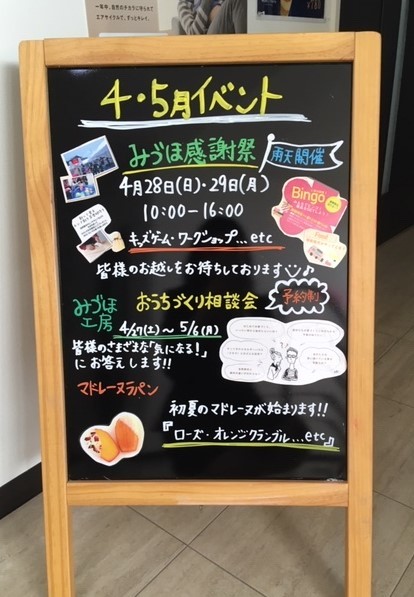 4・5月イベント
みづほ感謝祭
雨天開催
4月28日(日)・29日(月)
10:00-16:00
Bingo
キッズゲーム・ワークショップ...etc
皆様のお越しをお待ちしております♪
みづほ工房
おうちづくり相談会
予約制
4/27(土)～5/6(月)
皆様のさまざまな「気になる!」
にお答えします!!
マドレーヌラパン
初夏のマドレーヌが始まります!!
『ローズ・オレンジクランブル...etc』